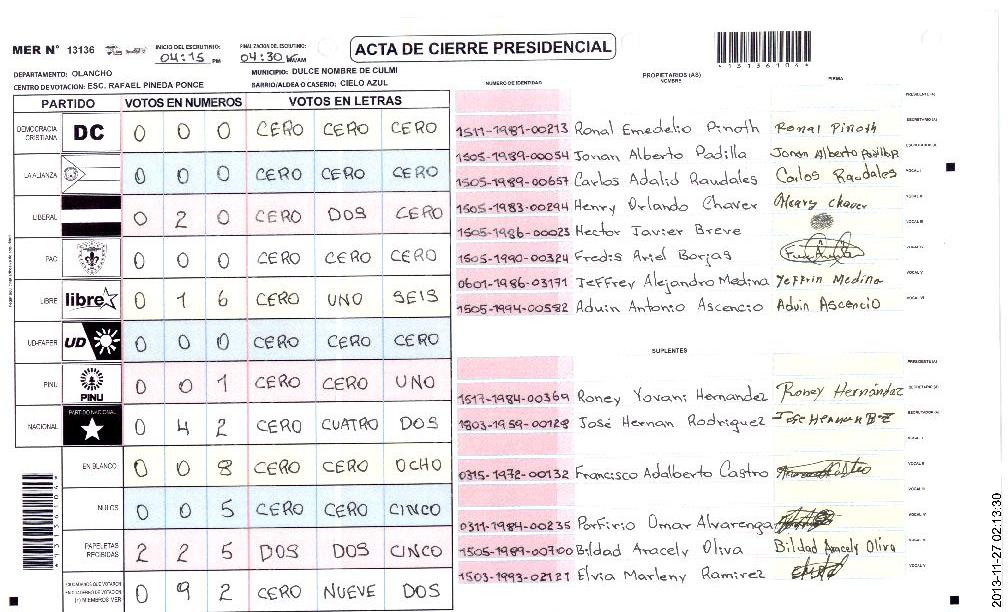 MER N° 13136
INICIO DEL ESCRUTINIO:
04:15 PM
FINALIZACION DEL ESCRUTINIO:
04:30
ACTA DE CIERRE PRESIDENCIAL
DEPARTAMENTO: OLANCHO
MUNICIPIO: DULCE NOMBRE DE CULMI
CENTRO DE VOTACION: ESC. RAFAEL PINEDA PONCE
BARRIO/ALDEA O CASERIO: CIELO AZUL
PARTIDO VOTOS EN NUMEROS VOTOS EN LETRAS
DEMOCRACIA CRISTIANA DC 0 0 0 CERO CERO CERO
LA ALIANZA 0 0 0 CERO CERO CERO
LIBERAL 0 2 0 CERO DOS CERO
PAC 0 0 0 CERO CERO CERO
LIBRE libre 0 1 6 CERO UNO SEIS
UD-FAPER UD 0 0 0 CERO CERO CERO
PINU PINU 0 0 1 CERO CERO UNO
NACIONAL PARTIDO NACIONAL 0 4 2 CERO CUATRO DOS
EN BLANCO 0 0 8 CERO CERO OCHO
NULOS 0 0 5 CERO CERO CINCO
PAPELETAS RECIBIDAS 2 2 5 DOS DOS CINCO
CIUDADANOS QUE VOTARON EN CUADERNO DE VOTACION (+) MIEMBROS MER 0 9 2 CERO NUEVE DOS
NUMERO DE IDENTIDAD
PROPIETARIOS (AS)
NOMBRE
FIRMA
PRESIDENTE (A)
SECRETARIO (A)
1511-1981-00213 Ronal Emedelio Pinoth Ronal Pinoth
ESCRUTADOR (A)
1505-1989-00054 Jonan Alberto Padilla Jonan Alberto Padilla
VOCAL I
1505-1989-00657 Carlos Adalid Raudales Carlos Raudales
VOCAL II
1505-1983-00294 Henry Orlando Chaver Henry Chaver
VOCAL III
1505-1986-00023 Hector Javier Breve
VOCAL IV
1505-1990-00324 Fredis Ariel Borjas
VOCAL V
0601-1986-03171 Jeffrey Alejandro Medina Yeffrin Medina
VOCAL VI
1505-1994-00582 Aduin Antonio Ascencio Aduin Ascencio
SUPLENTES
PRESIDENTE (A)
SECRETARIO (A)
1517-1984-00369 Roney Yovani Hernandez Roney Hernández
ESCRUTADOR (A)
1803-1959-00128 José Hernan Rodriguez
VOCAL I
VOCAL II
0315-1972-00132 Francisco Adalberto Castro
VOCAL III
VOCAL IV
0311-1984-00235 Porfirio Omar Alvarenga
1505-1989-00700 Bildad Aracely Oliva Bildad Aracely Oliva
VOCAL V
1503-1993-02121 Elvia Marleny Ramirez
2013-11-27 02:13:30